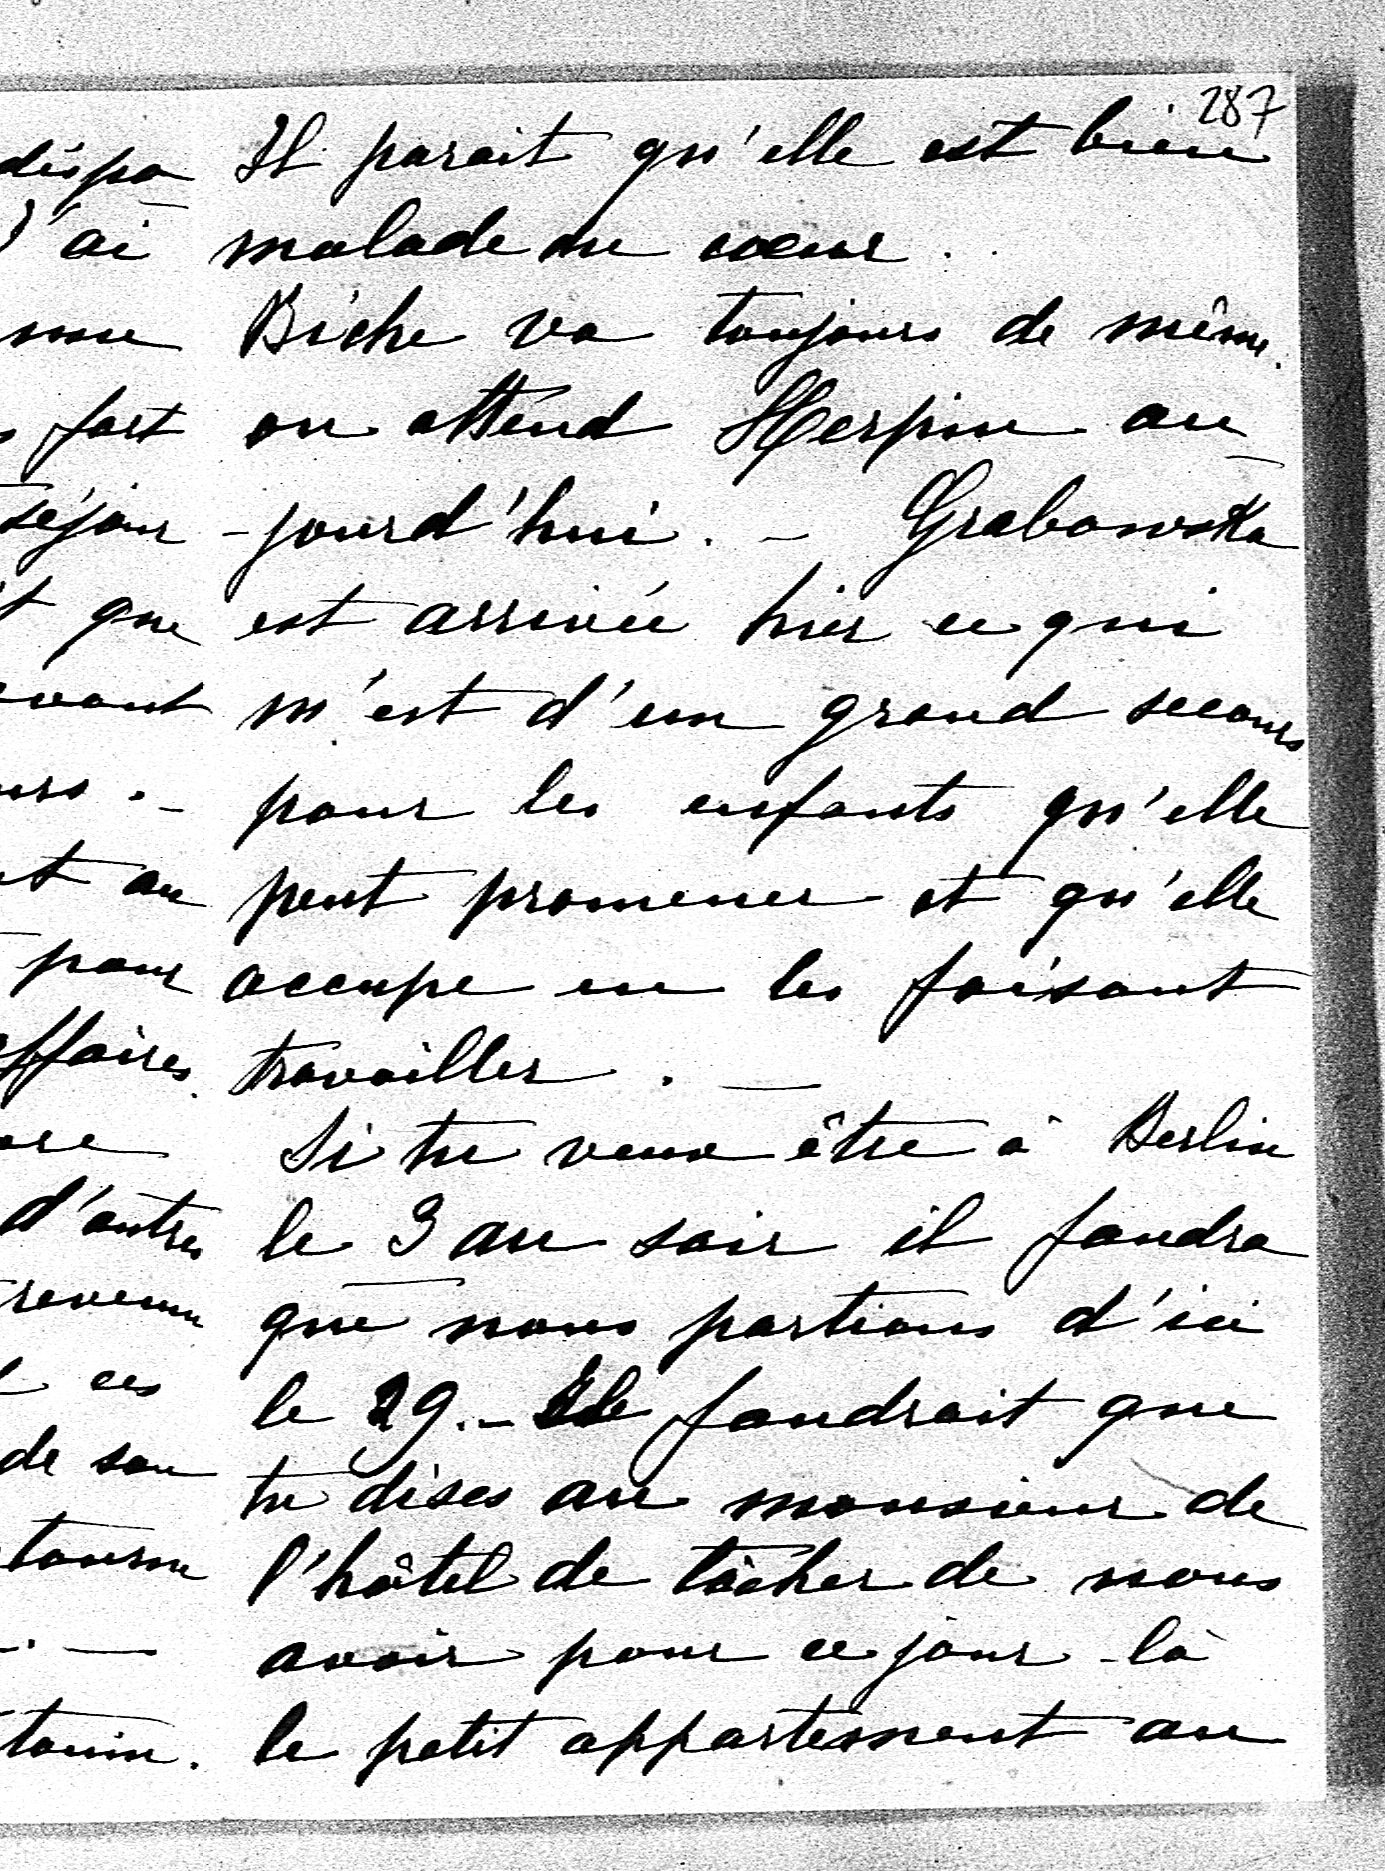 287
Il parait qu'elle est bien
malade du coeur.
Biche va toujours de même.
on attend Herpin au
-jourd'hui. - Grabowska
est arrivée hier ce qui
m'est d'un grand secours
pour les enfants qu'elle
peut promener et qu'elle
occupe en les faisant
travailler. —
Si tu veux être à Berlin
le 3 au soir il faudra
que nous partions d'ici
le 29. - Il faudrait que
tu dises au monsieur de
l'hôtel de tâcher de nous
avoir pour ce jour-là
le petit appartement au
dispa
J'ai
fort
séjour
que
avant
au
pour
affaires.
d'autres
revenu
ces
de son
tourne